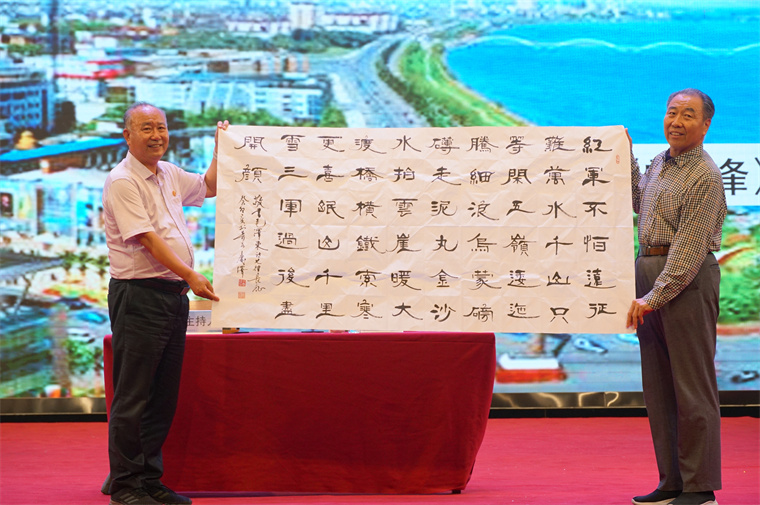 紅軍不怕遠征
難萬水千山只
等閑五嶺逶迤
騰細浪烏蒙磅
礴走泥丸金沙
水拍雲崖暖大
渡橋橫鐵索寒
更喜岷山千里
雪三軍過後盡
開顏
毛澤東
癸卯
主持
锋》